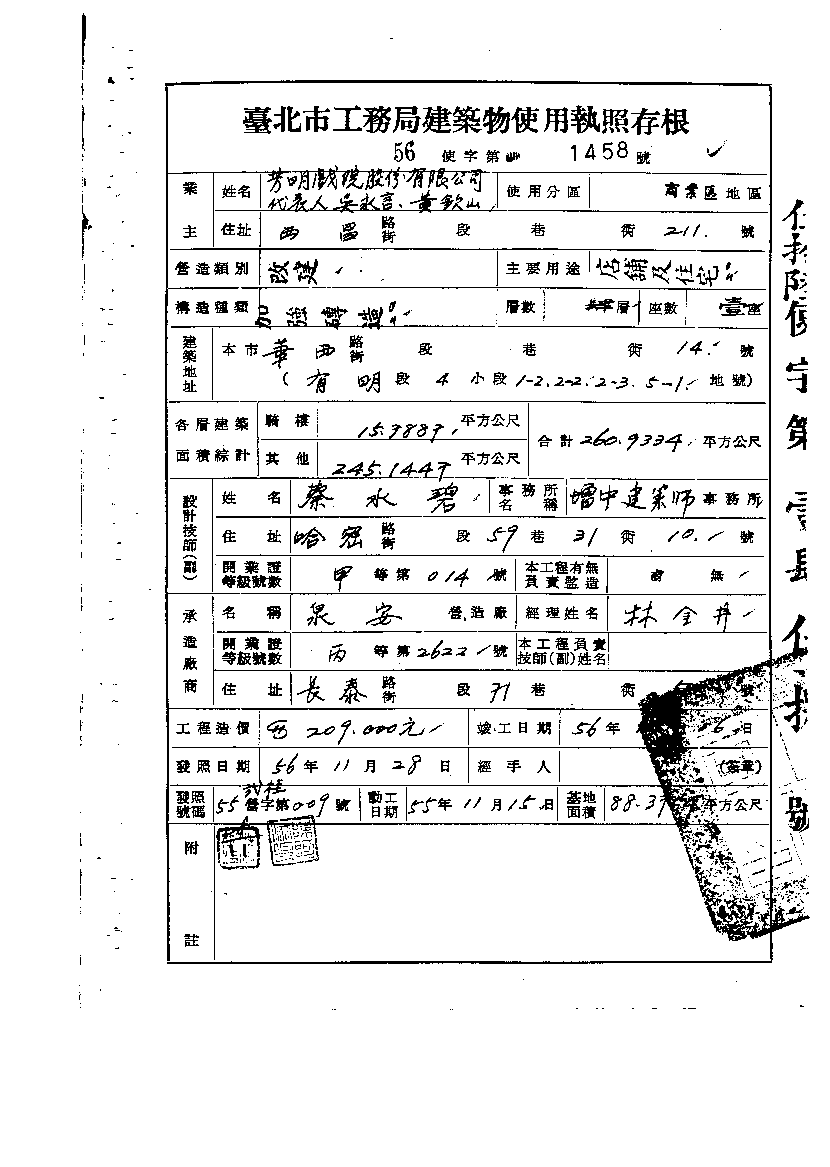 臺北市工務局建築物使用執照存根
56 使字第 1458 號
業主 姓名 芳明戲院股份有限公司 代表人 吳永言、黃欽山 使用分區 商業區地區
住址 西 路街 段 巷 街 211 號
營造類別 改建 主要用途 店舖及住宅
構造種類 加強磚造 層數 肆層 座數 壹座
建築地址 本市 華西 路街 段 巷 街 14 號
(有明段 4 小段 1-2.2-2.2-3.5-1 地號)
各層建築面積綜計 騎樓 15.7887 平方公尺 合計 260.9334 平方公尺
其他 245.1447 平方公尺
設計技師(副) 姓名 蔡水碧 事務所名稱 增中建築師事務所
住址 哈密 路街 段 59 巷 31 街 10 號
開業證等級號數 甲 等第 014 號 本工程有無負責監造 無
承造廠商 名稱 泉安 營造廠 經理姓名 林全井
開業證等級號數 丙 等第 2622 號 本工程負責技師(副)姓名
住址 長泰 路街 段 71 巷 街 號
工程造價 209.000元 竣工日期 56年 日
發照日期 56年 11月 28日 經手人 (簽章)
發照號碼 55 營字第009號 動工日期 55年 11月 15日 基地面積 88.3 平方公尺
附註
使字第壹
號